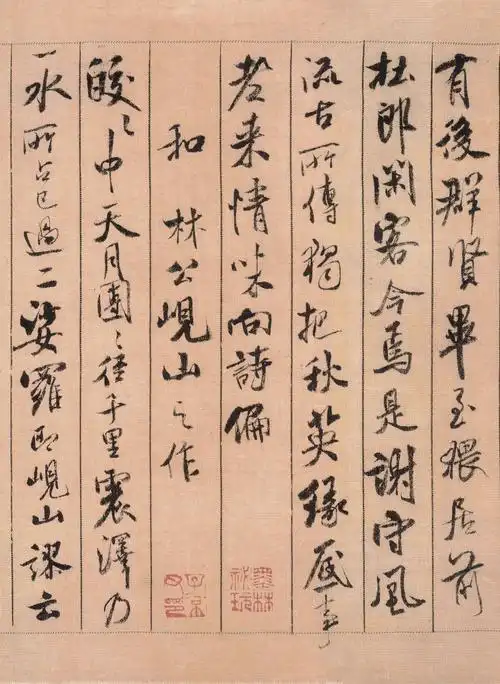 有後群賢畢至猥居前
杜郎閑客今焉是謝守風
流古所傳獨把秋英緣底事
老来情味向詩偏
和林公峴山之作
皎〻中天月團〻徑千里震澤乃
一水所占已過二娑羅即峴山謬云
墨林祕玩
子京父印